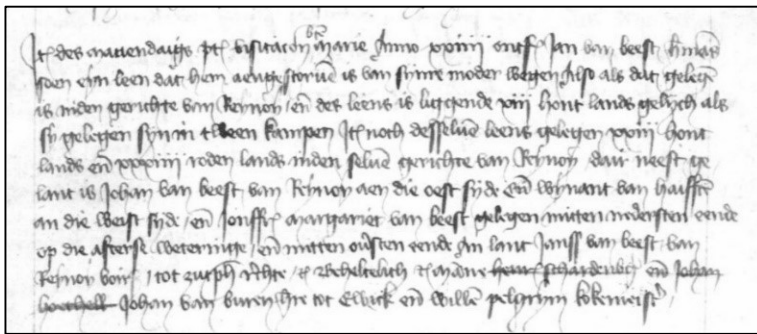 Itẽ des manendaigs pt visitacõn btẽ marie Anno xxiiii ontfẽ Jan van beest hermans
soen eyn leen dat hem aengestoruẽ is van synre moder wegen Also als dat gelegẽ
is inden gerichte van Reynoy / eñ des leens is liggende xiii hont lands gelijch als
sy gelegen syn in tween kampen Itẽ noch desseluẽ leens gelegen xxiii hont
lands eñ xxxiiii roden lands inden seluẽ gerichte van Reynoy dair neest ge
lant is Johan van beest van Reynoy aen die oest syde eñ wynant van haifftẽ
an die west syde / eñ Jonffẽ margariet van beest gelegen mitten nedersten eende
op die afterste weteringe / eñ mitten ouersten eende An lant Janss van beest van
Reynoy voirs / tot zutphẽ rechte / eñ eñ Johan
Johan van buren hre tot Ewick eñ willẽ pelgrim kokemeistẽ